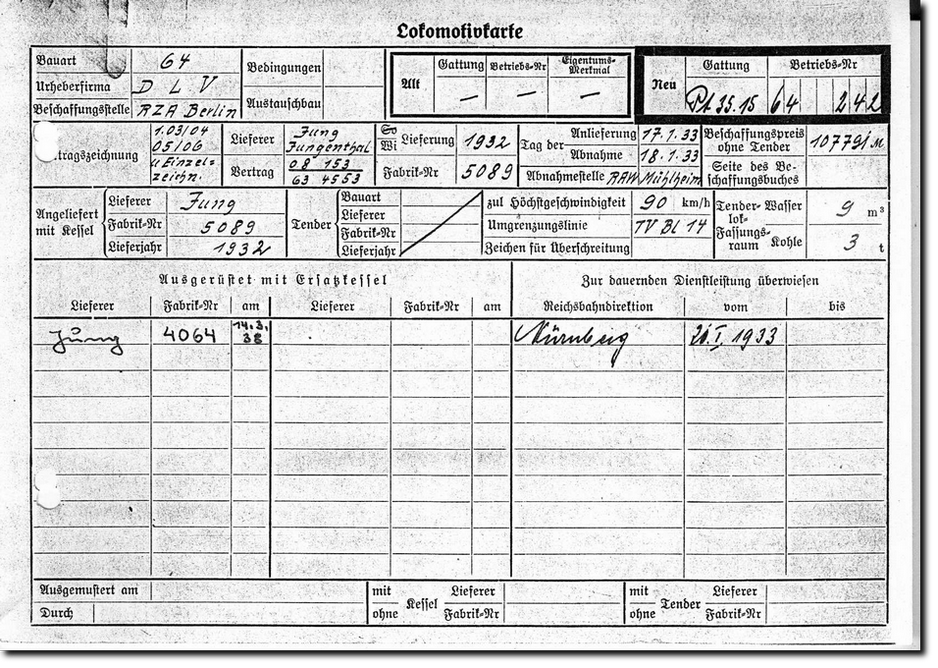 Lokomotivkarte
Bauart 64
Urheberfirma D L V
Beschaffungsstelle RZA Berlin
Bedingungen
Austauschbau
Alt
Gattung —
Betriebs-Nr —
Eigentums-Merkmal —
Neu
Gattung Pt 35.15
Betriebs-Nr 64 242
tragszeichnung
1.03/04
05/06
u Einzel=
zeichn.
Lieferer Jung
Jungenthal
Vertrag 08 153
63 4553
So
Wi
Lieferung 1932
Fabrik-Nr 5089
Tag der
Anlieferung 17.1.33
Abnahme 18.1.33
Abnahmestelle RAW Mühlheim
Beschaffungspreis
ohne Tender
Seite des Be-
schaffungsbuches
Angeliefert
mit Kessel
Lieferer Jung
Fabrik-Nr 5089
Lieferjahr 1932
Tender
Bauart
Lieferer
Fabrik-Nr
Lieferjahr
zul Höchstgeschwindigkeit 90 km/h
Umgrenzungslinie TV Bl 14
Zeichen für Überschreitung
Tender-
lok-
Fassungs-
raum
Wasser 9 m³
Kohle 3 t
Ausgerüstet mit Ersatzkessel
Zur dauernden Dienstleistung überwiesen
Lieferer Fabrik-Nr am Lieferer Fabrik-Nr am Reichsbahndirektion vom bis
Jung 4064 14.3.
38
Nürnberg 20.I.1933
Ausgemustert am
Durch
mit
ohne
Kessel
Lieferer
Fabrik-Nr
mit
ohne
Tender
Lieferer
Fabrik-Nr